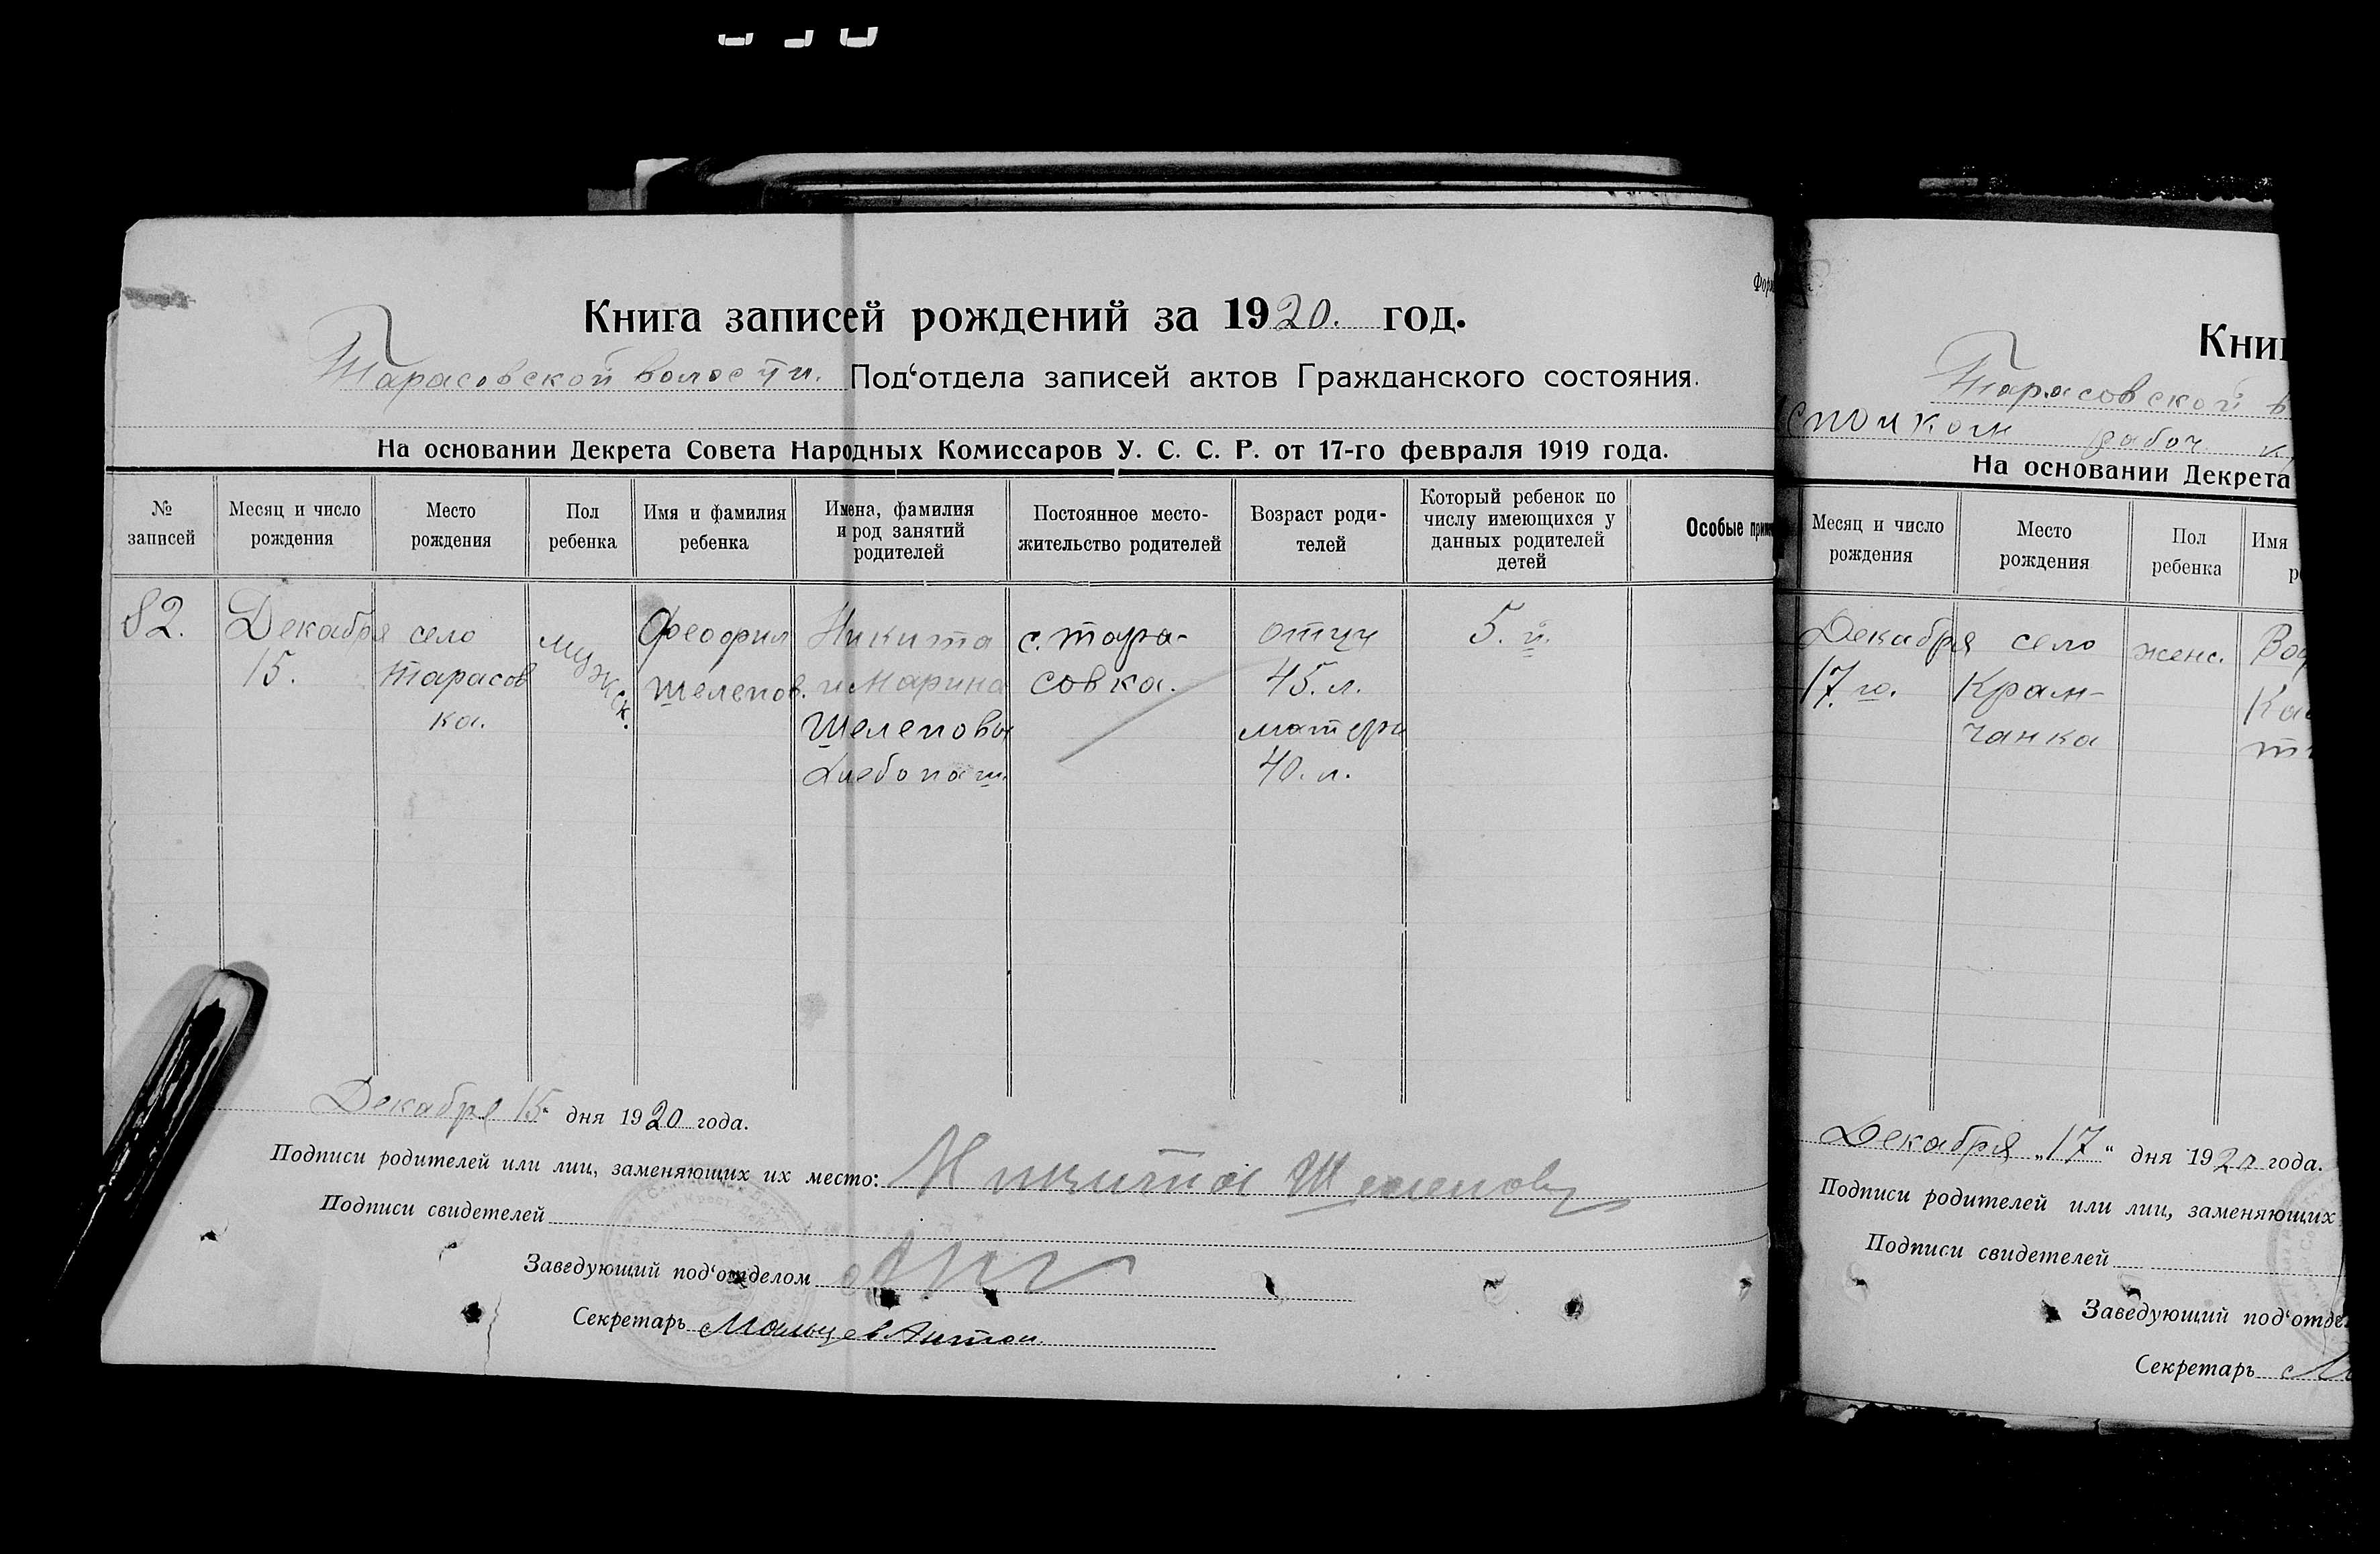 Книга записей рождений за 1920. год.
Тарасовской волости. Под‘отдела записей актов Гражданского состояния.
На основании Декрета Совета Народных Комиссаров У. С. С. Р. от 17-го февраля 1919 года.
№ записей
Месяц и число рождения
Место рождения
Пол ребенка
Имя и фамилия ребенка
Имена, фамилия и род занятий родителей
Постоянное место-
жительство родителей
Возраст роди-
телей
Который ребенок по
числу имеющихся у
данных родителей
детей
Особые
82.
Декабря
15.
село
Тарасов
ка.
мужск.
Феофил
Шелепов.
Никита
и Марина
Шелеповы
Хлебопаш.
с. Тара-
совка.
отцу
45. л.
матери
40. л.
5. й.
Декабря 15 дня 1920 года.
Подписи родителей или лиц, заменяющих их место: Никита Шелепов
Подписи свидетелей
Заведующий под‘отделом
Секретарь Мальцев Антон.
Книг
Тарасовской в
рабоч.
На основании Декрета
Месяц и число
рождения
Место
рождения
Пол
ребенка
Имя
Декабря
17 го.
село
Крам-
чанка
женс.
Декабря „17“ дня 1920 года.
Подписи родителей или лиц, заменяющих
Подписи свидетелей
Заведующий под‘отде
Секретарь